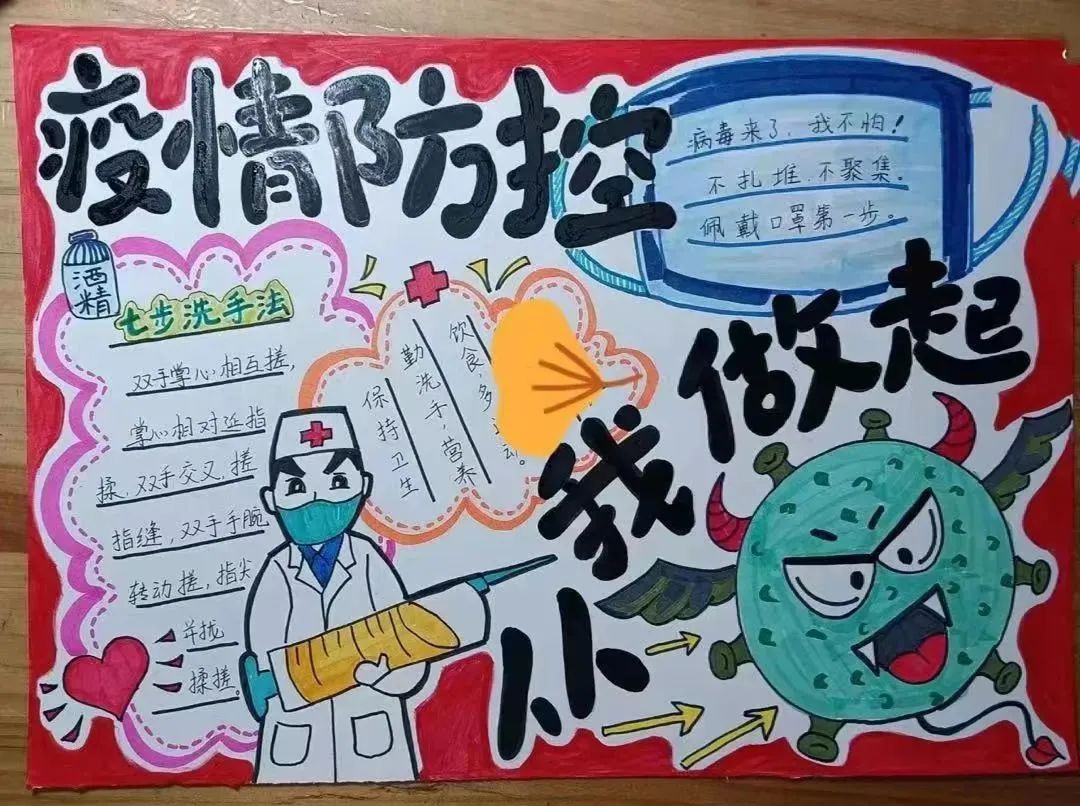 疫情防控
从我做起
病毒来了,我不怕!
不扎堆,不聚集。
佩戴口罩第一步。
酒精
七步洗手法
双手掌心相互搓,
掌心相对延指
揉,双手交叉,搓
指缝,双手手腕
转动搓,指尖
并拢
揉搓。
保持卫生
勤洗手,营养
饮食,多
动。